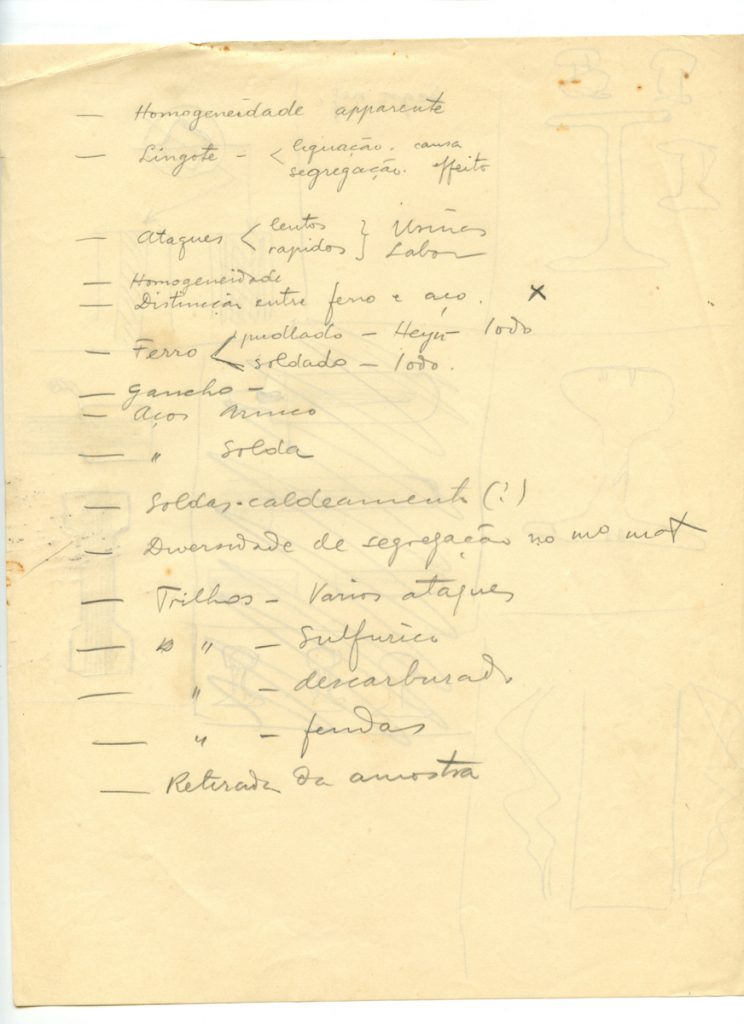 — Homogeneidade apparente
— Lingote – < liquação. causa
segregação. effeito
— Ataques < lentos } Usinas
rapidos } Labor
— Homogeneidade
— Distincção entre ferro e aço. X
— Ferro < pudlado – Heyn – Iodo
soldado – Iodo.
— Gancho –
— Aços Armco
— " Solda
— Soldas-caldeamento (?)
— Diversidade de segregação no mo mat
— Trilhos – Varios ataques
— " – Sulfurico
— " – descarburado
— " – fendas
— Retirada da amostra